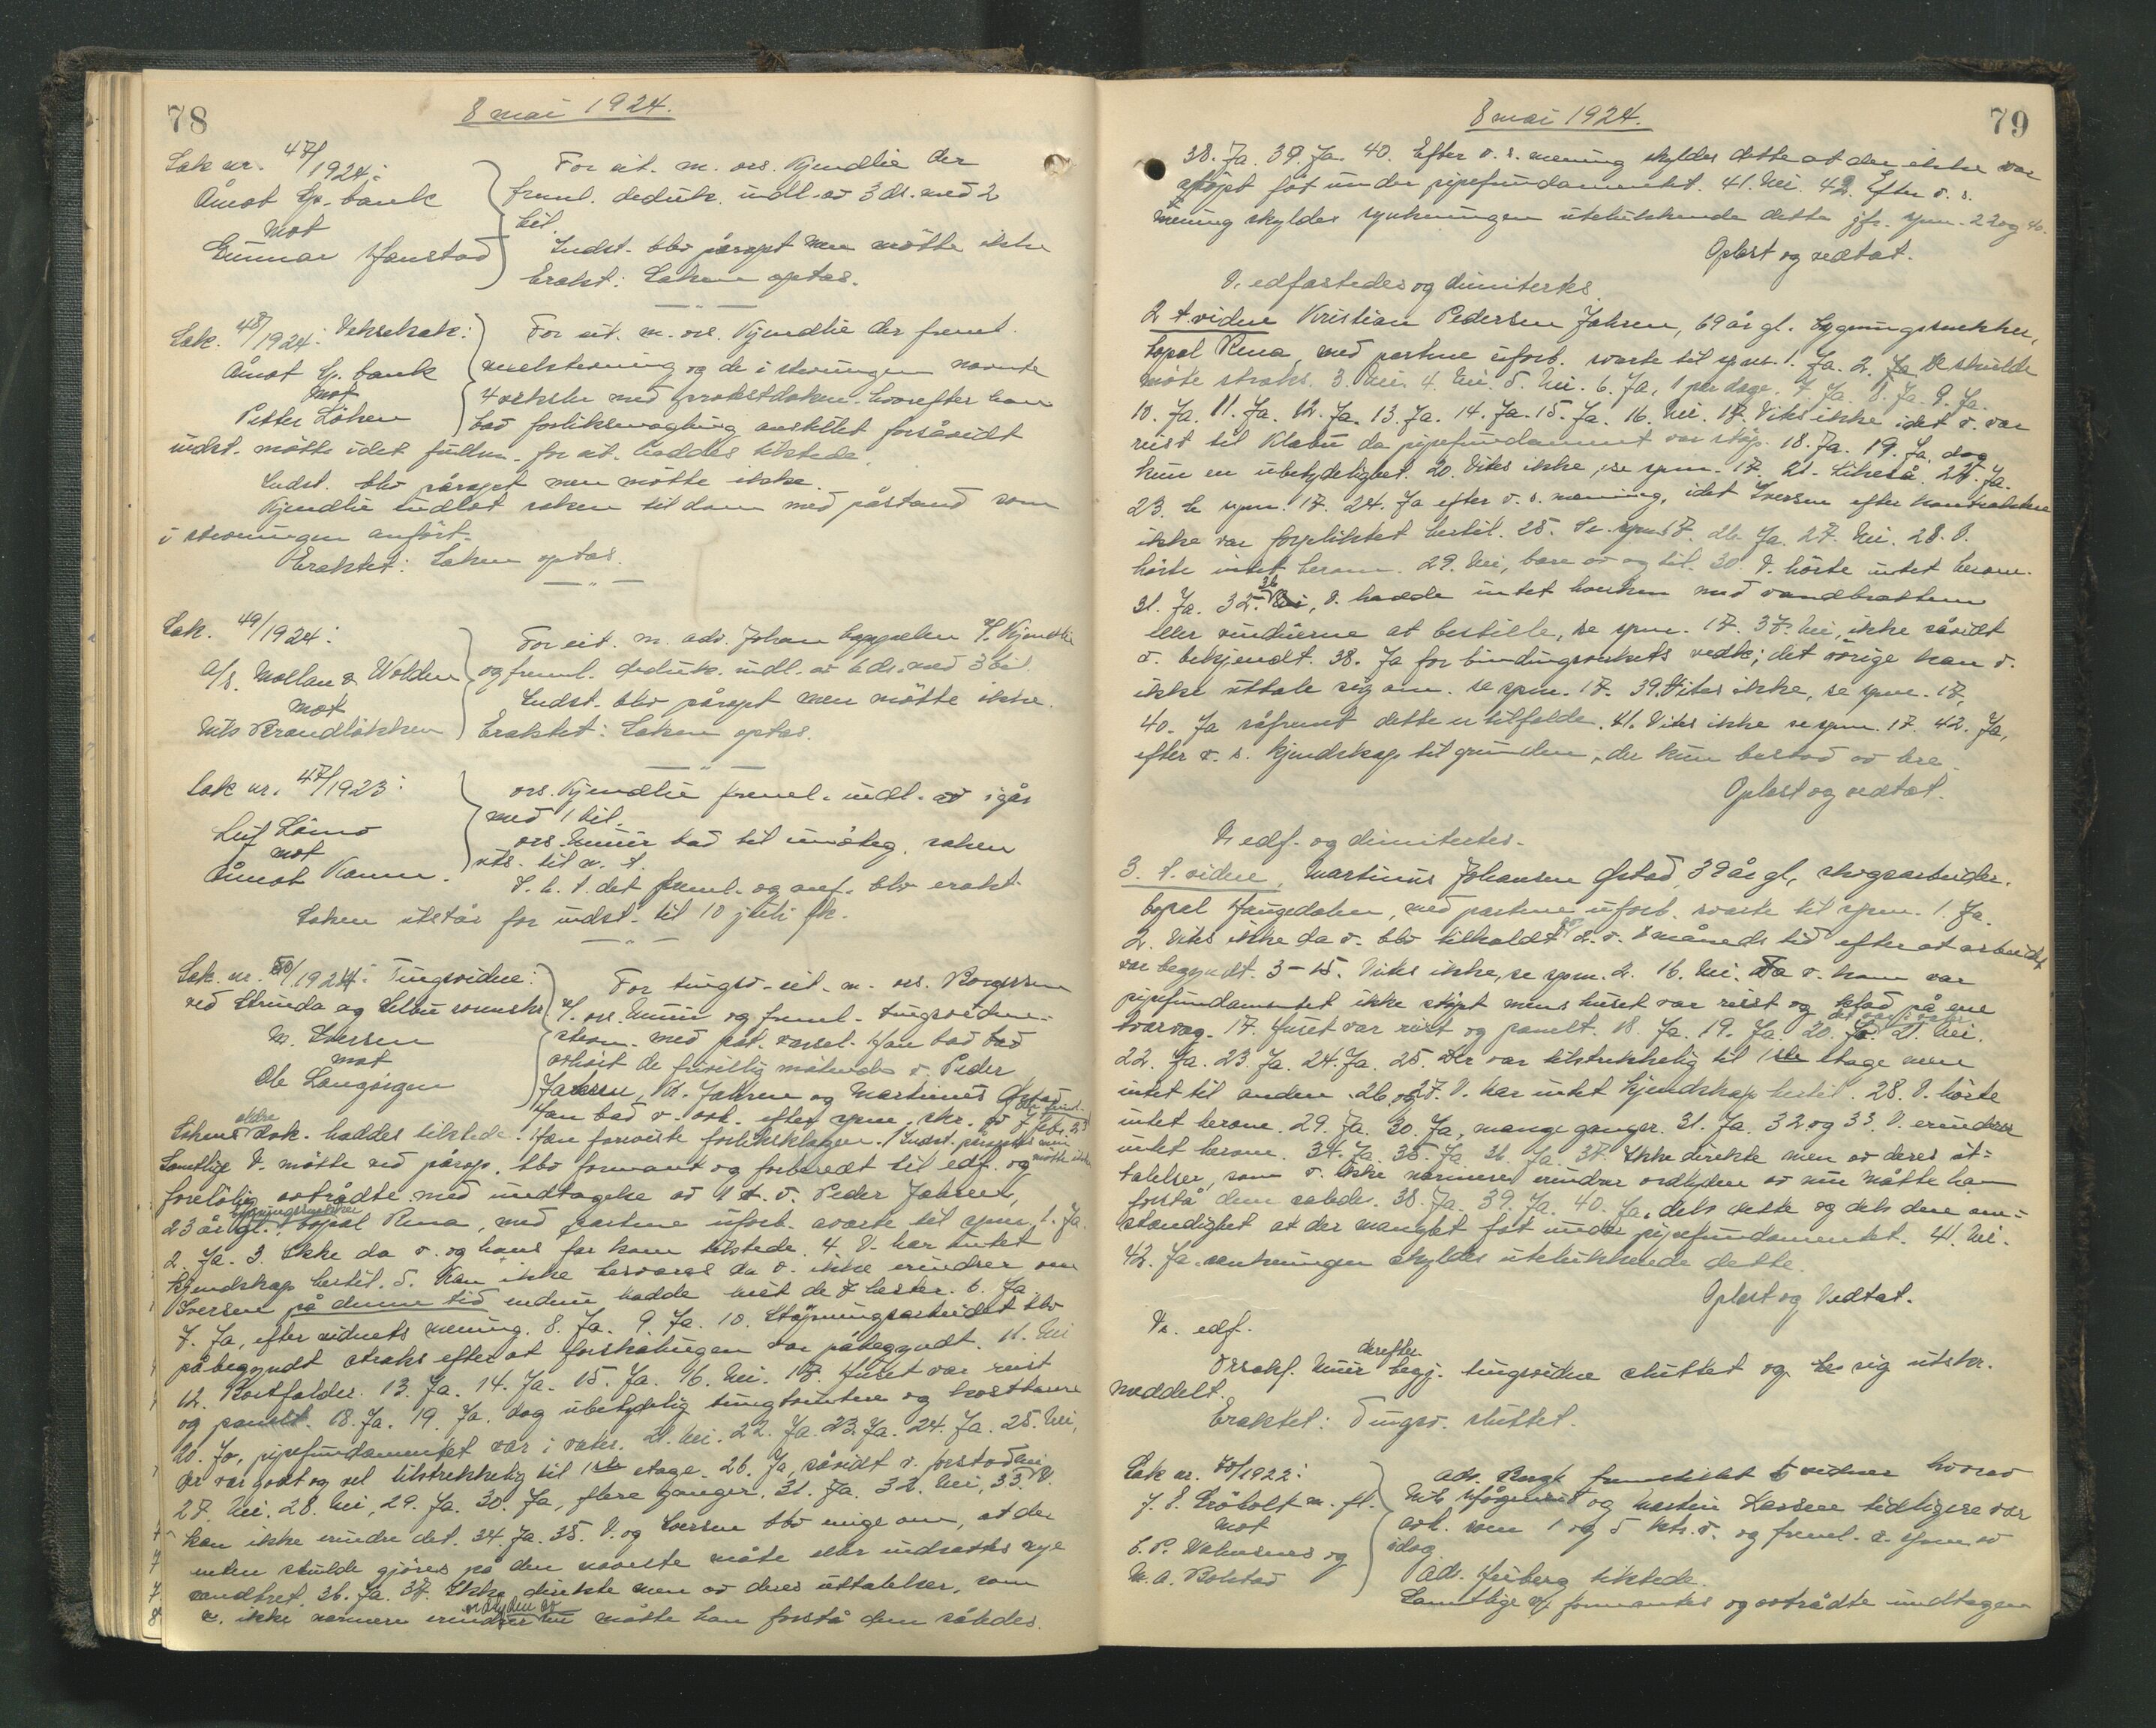 78
8 mai 1924.
Sak nr. 47/1924:
Åmot Sp. bank
mot
Gunnar Hanstad
For cit. m. ors. Kjendlie der
freml. deduk. indl. av 3 ds. med 2
bil.
Indst. blev påropt men mötte ikke
Erakt: Saken optas.
Sak. 48/1924: Vekselsak:
Åmot Sp. bank
mot
Petter Löken
For cit. m. ors. Kjendlie der freml.
vekselstevning og de i stevningen nævnte
4 veksler med protestdokum. hvorefter han
bad forliksmægling anstillet forsåvidt
indst. mötte idet fuldm. for cit. haddes tilstede.
Indst. blev påropt men mötte ikke.
Kjendlie indlot saken til dom med påstand som
i stevningen anfört.
Eraktet: Saken optas.
Sak. 49/1924:
A/S. Mollan & Wolden
mot
Nils Brandlökken
For cit. m. adv. Johan Cappelen v/. Kjendlie
og freml. deduk. indl. av 6 ds. med 3 bil.
Indst. blev påropt men mötte ikke.
Eraktet: Saken optas.
Sak nr. 47/1923:
Leif
mot
Åmot Komm.
ors. Kjendlie freml. indl. av igår
med 1 bil.
ors. Munir bad til imöteg. saken
uts. til n. t.
S. b. t. det freml. og anf. blev erakt.
Saken utstår for indst. til 10 juli fk.
Sak. nr. 50/1924: Tingsvidne:
ved Strinda og Selbu sorenskr.
M. Iversen
mot
Ole Langörgen
For tingsv. cit. m. ors. Borgersen
v/. ors. Munir og freml. tingsvidne-
stevn. med påt. varsel. Han bad
avhört de frivillig mötende v. Peder
Jahren, Kr. Jahren og Martinus Östad.
Han bad v. avh. efter spm. skr. av 7 febr.
Sakens ældre dok. haddes tilstede. Han foreviste forliksklagen. / Indst. påroptes men mötte ikke
Samtlige V. mötte ved pårop, blev formant og forberedt til edf. og
forelöbig avtrådte med undtagelse av 1 t. v. Peder Jahren,
23 år gl. bygningssnekker, bopæl Rena, med partene uforb. svarte til spm. 1. Ja.
2. Ja. 3. Ikke da v. og hans far kom tilstede. 4. V. har intet
kjendskap hertil. 5. Kan ikke besvares da v. ikke erindrer om
Iversen på denne tid endnu hadde leiet de 7 hester. 6. Ja
7. Ja, efter vidnets mening. 8. Ja. 9. Ja. 10. Stöpningsarbeidet blev
påbegyndt straks efter at forskalingen var påbegyndt. 11. Nei
12. Bortfalder. 13. Ja. 14. Ja. 15. Ja. 16. Nei. 17. Huset var reist
og panelt. 18. Ja. 19. Ja. dog ubetydelig
20. Ja, pipefundamentet var i vater. 21. Nei. 22. Ja. 23. Ja. 24. Ja. 25. Nei,
der var godt og vel tilstrekkelig til 1ste etage. 26. Ja, såvidt v. forstod
27. Nei. 28. Nei, 29. Ja. 30. Ja, flere ganger. 31. Ja. 32. Nei, 33. V.
kan ikke erindre det. 34. Ja. 35. V. og Iversen blev enige om, at det
enten skulde gjöres på den nævnte måte eller indsættes nye
vandbret. 36. Ja. 37. Ikke direkte men av deres uttalelser, som
v. ikke nærmere erindrer ordlyden av nu måtte han forstå dem således.
79
8 mai 1924.
38. Ja. 39. Ja. 40. Efter v. s. mening skyldes dette at der ikke var
stöpt föt under pipefundamentet. 41. Nei. 42. Efter v. s.
mening skyldes synkningen utelukkende dette jfr. spm. 22 og 40.
Oplest og vedtat.
V. edfæstedes og dimitertes.
2 t. vidne Kristian Pedersen Jahren, 69 år gl. bygningssnekker,
bopæl Rena, med partene uforb. svarte til spm. 1. Ja. 2. Ja de skulde
möte straks. 3. Nei. 4. Nei. 5. Nei. 6. Ja, 1 par dage. 7. Ja. 8. Ja. 9. Ja.
10. Ja. 11. Ja. 12. Ja. 13. Ja. 14. Ja. 15. Ja. 16. Nei. 17. Vites ikke idet v. var
reist til Klæbu da pipefundamentet var stöp. 18. Ja. 19. Ja, dog
kun en ubetydelighet. 20. Vites ikke, se spm. 17. 21. Likeså. 22. Ja.
23. Se spm. 17. 24. Ja efter v. s. mening, idet Iversen efter kontrakten
ikke var forpliktet hertil. 25. Se spm. 17. 26. Ja. 27. Nei. 28. V.
hörte intet herom. 29. Nei, bare av og til. 30. V. hörte intet herom.
31. Ja. 32-36 V. hadde intet hverken med vandbrættene
eller vinduerne at bestille, se spm. 17. 37. Nei, ikke såvidt
v. bekjendt. 38. Ja for bindingsverkets vedk; det övrige kan v.
ikke uttale sig om. se spm. 17. 39. Vites ikke, se spm. 17,
40. Ja såfremt dette er tilfælde. 41. Vites ikke se spm. 17. 42. Ja,
efter v. s. kjendskap til grunden, der kun bestod av lere.
Oplest og vedtat.
V. edf. og dimitertes.
3. t. vidne, Martinus Johansen Östad, 39 år gl, skogsarbeider.
bopæl Haugedalen, med partene uforb. svarte til spm. 1. Ja.
2. Vites ikke da v. blev tilkaldt måneds tid efter at arbeidet
var begyndt. 3-15. Vites ikke, se spm. 2. 16. Nei. Da v. kom var
pipefundamentet ikke stöpt mens huset var reist og klæd på ene
tværvæg. 17. Huset var reist og panelt. 18. Ja. 19. Ja. 20. 21. Nei.
22. Ja. 23. Ja. 24. Ja. 25. Der var tilstrekkelig til 1ste etage men
intet til anden. 26. og 27. V. har intet kjendskap hertil. 28. V. hörte
intet herom. 29. Ja. 30. Ja, mange ganger. 31. Ja. 32 og 33. V. erindrer
intet herom. 34. Ja. 35. Ja 36. Ja. 37. Ikke direkte men av deres ut=
talelser, som v. ikke nærmere erindrer ordlyden av nu måtte han
forstå dem således. 38. Ja. 39. Ja. 40. Ja, dels dette og dels den om=
stændighet at der manglet föt under pipefundamentet. 41. Nei.
42. Ja. senkningen skyldes utelukkende dette.
Oplest og Vedtat.
V. edf.
Orsakf. Munir derefter begj. tingsvidne sluttet og sig utskr.
meddelt.
Eraktet: Tingsv. sluttet.
Sak nr. 70/1922:
J. E. Tröbolt m. fl.
mot
C. P. og
M. A. Bolstad
adv. fremstillet 6 vidner hvorav
Nils og Martin Larsen tidligere var
avh. som 1 og 5 v. og freml. v. spm av
idag.
Adv. Heiberg tilstede.
Samtlige v. formantes og avtrådte undtagen